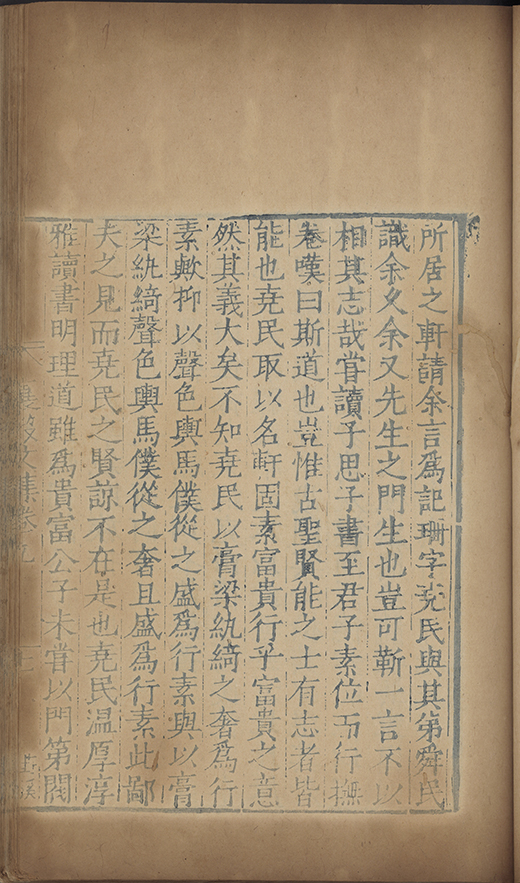 所居之軒請余言爲記珊字堯民與其弟舜民
識余久余又先生之門生也豈可靳一言不以
相其志哉甞讀子思子書至君子素位而行撫
卷嘆曰斯道也豈惟古聖賢能之士有志者皆
能也堯民取以名軒固素富貴行乎富貴之意
然其義大矣不知堯民以膏梁紈綺之奢爲行
素歟抑以聲色輿馬僕從之盛爲行素與以膏
梁紈綺聲色輿馬僕從之奢且盛爲行素此鄙
夫之見而堯民之賢諒不在是也堯民温厚淳
雅讀書明理道雖爲貴富公子未甞以門第閥
襄毅文集卷九